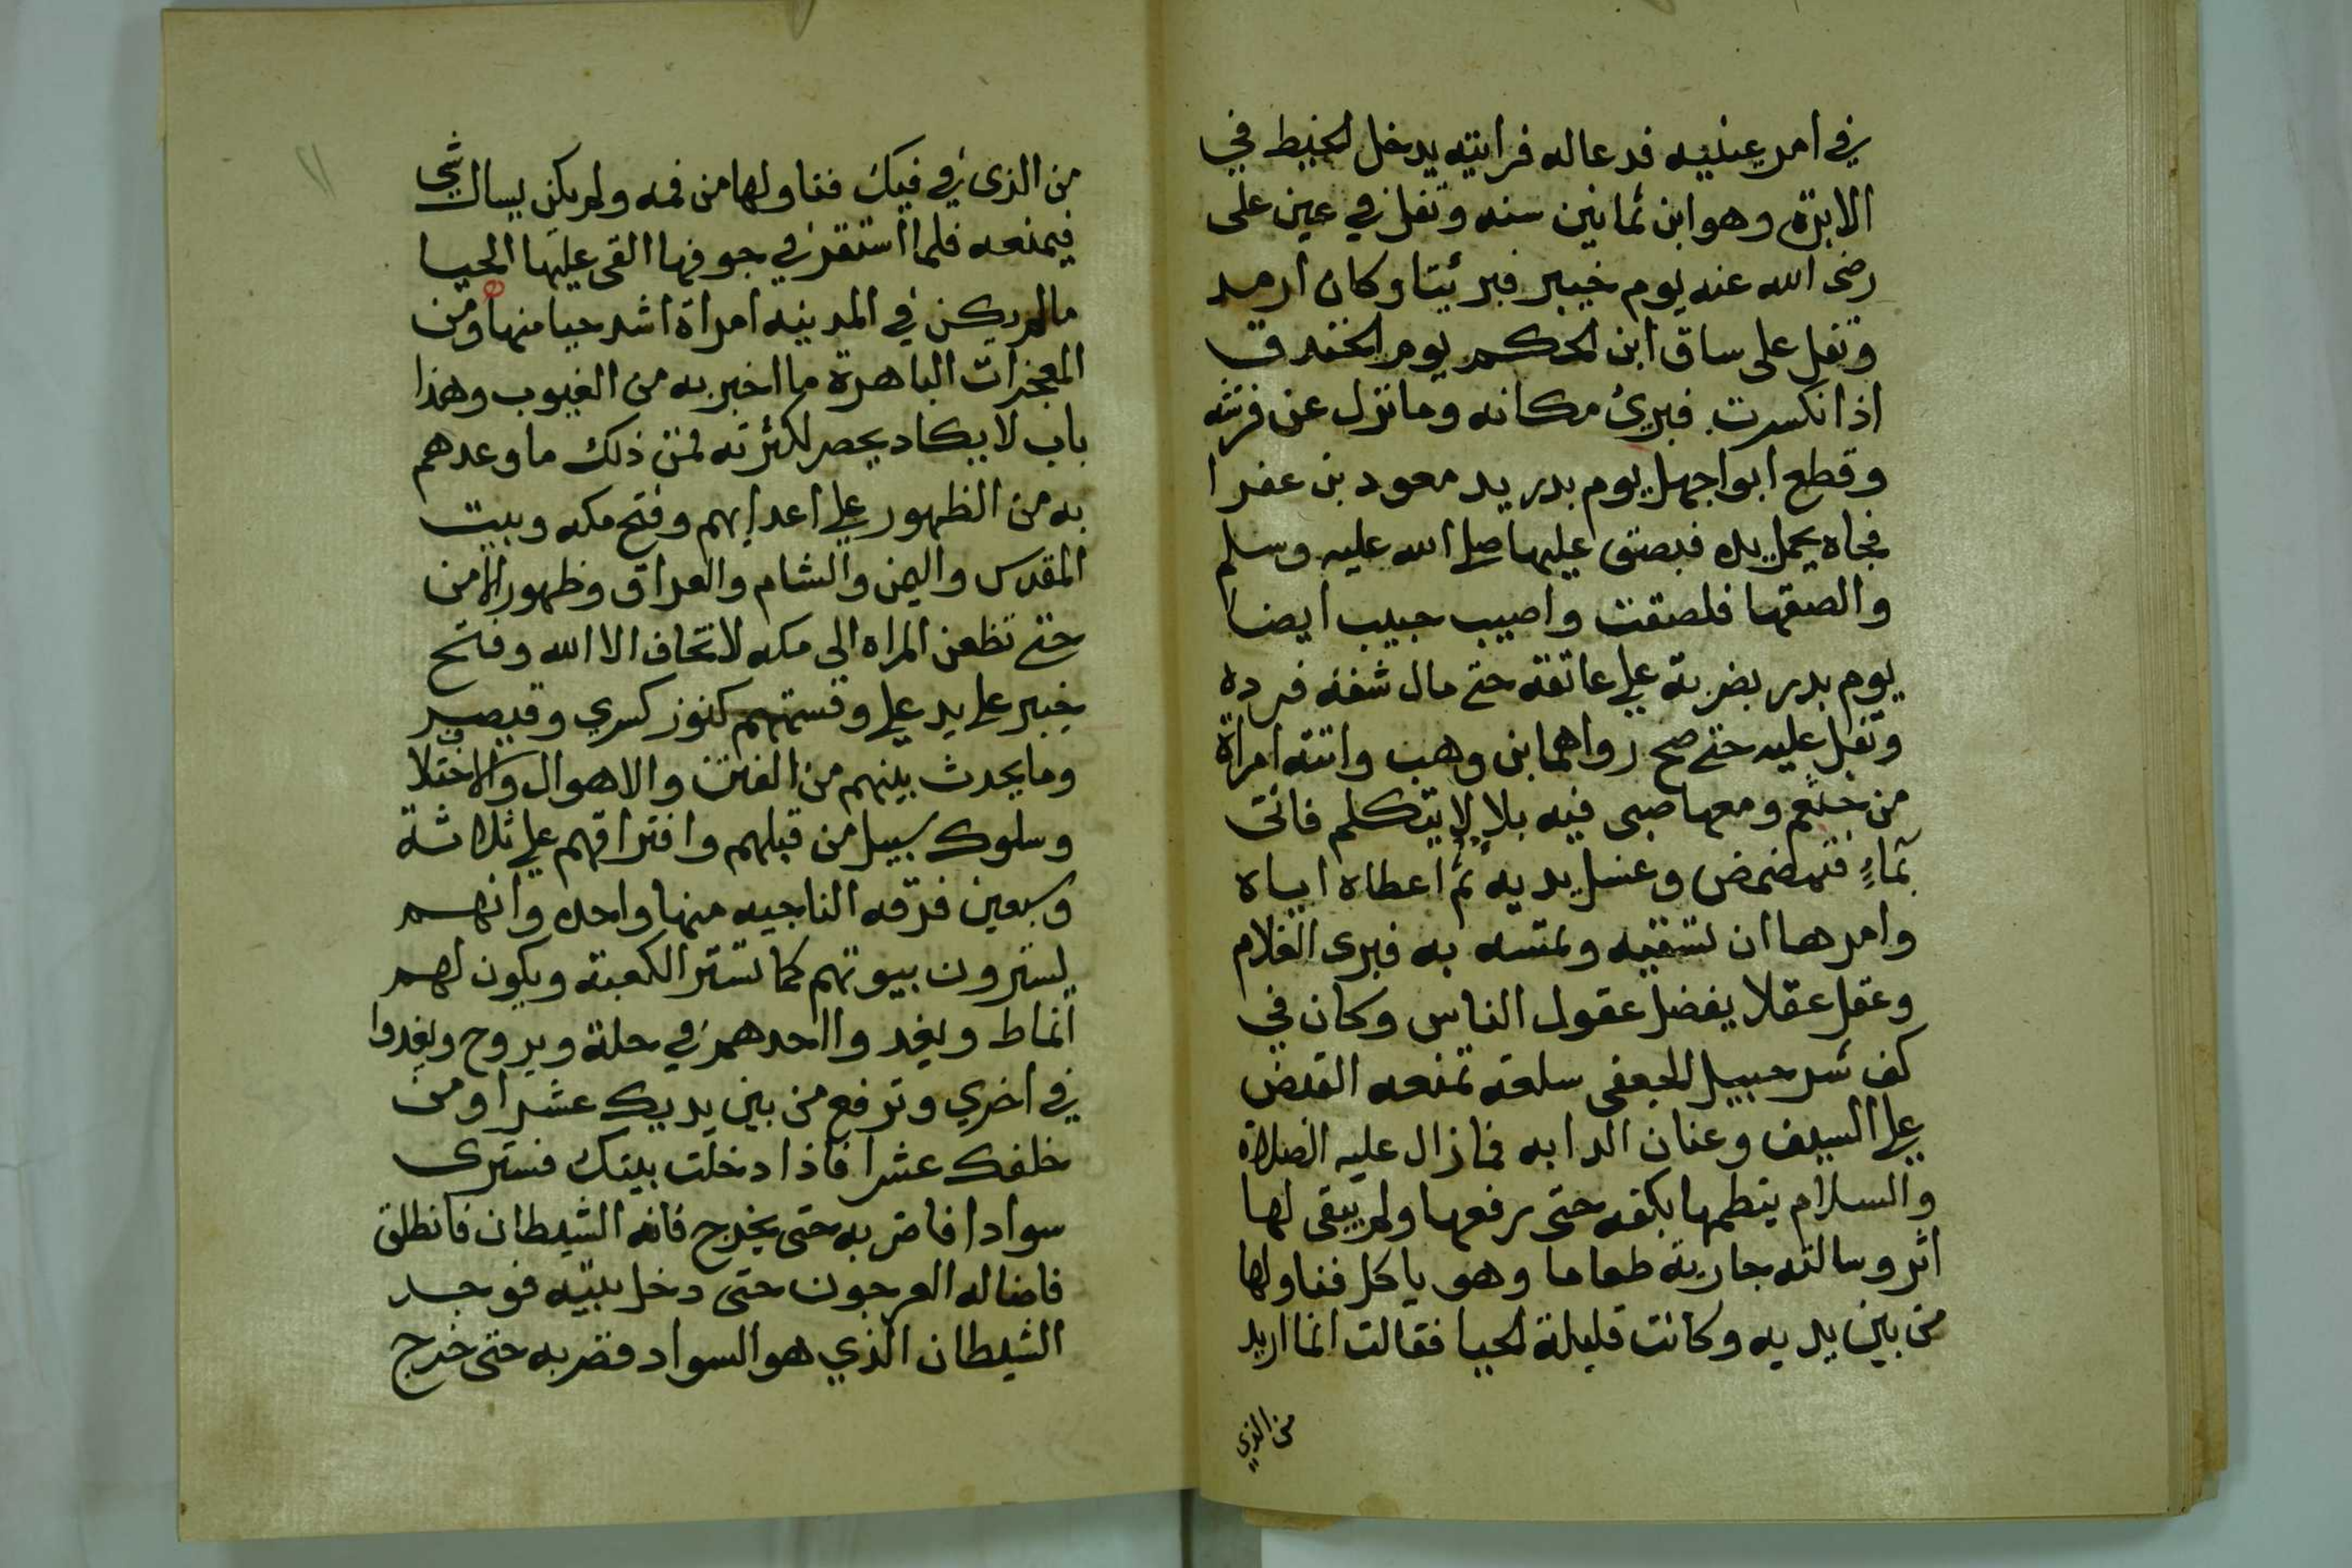 في امر عينيه فدعا له فرايته يدخل الخيط في
الابرة وهو ابن ثمانين سنه وتفل في عين على
رضى الله عنه يوم خيبر فبرئتا وكان ارمد
وتفل على ساق ابن الحكم يوم الخندق
اذا نكسرت فبرئ مكانه وما نزل عن فرسه
وقطع ابوا جهل يوم بدر يد معود بن عفرا
فجاه يحمل يده فبصق عليها صلى الله عليه وسلم
والصقها فلصقت واصيب حبيب ايضا
يوم بدر بضربة علي عاتقه حتي مال شقه فرده
وتفل عليه حتي صح رواهما ابن وهب واتته امراة
من خثعم ومعها صبى فيه بلا لا يتكلم فاتى
بماءٍ فتمضمض وغسل يديه ثم اعطاه اياه
وامرها ان تسقيه وتمسه به فبرى الغلام
وعقل عقلا يفضل عقول الناس وكان في
كف شرحبيل الجعفى سلعة تمنعه القبض
علي السيف وعنان الدابه فما زال عليه الصلاة
والسلام يتطمها بكفه حتى رفعها ولم يبقى لها
اثر وسالته جارية طعاما وهو ياكل فناولها
من بين يديه وكانت قليلة الحيا فقالت انما اريد
من الذي
من الذى في فيك فناولها من فمه ولم يكن يسال شي
فيمنعه فلما استقر في جوفها القى عليها الحيا
مالم يكن في المدينه امراة اشد حيا منها ومن
المعجزات الباهرة ما اخبر به من الغيوب وهذا
باب لا يكاد يحصر لكثرته فمن ذلك ما وعدهم
به من الظهور علي اعدايهم وفتح مكه وبيت
المقدس واليمن والشام والعراق وظهور الامن
حتي تظعن المراه الي مكه لا تخاف الا الله وفتح
خيبر علي يد علي وقسمتهم كنوز كسري وقيصر
وما يحدث بينهم من الفتن والاهوال والاختلاف
وسلوك سبيل من قبلهم وافتراقهم علي ثلاثة
وسبعين فرقه الناجيه منها واحده وانهم
يسترون بيوتهم كما تستر الكعبته ويكون لهم
انماط ويغد وااحدهم في حلة ويروح ويغدوا
في اخري وترفع من بين يديك عشرا ومن
خلفك عشرا فاذا دخلت بيتك فسترى
سوادا فاضربه حتى يخرج فانه الشيطان فانطلق
فاضا له العرجون حتى دخل بيته فوجد
الشيطان الذي هو السواد فضربه حتى خرج